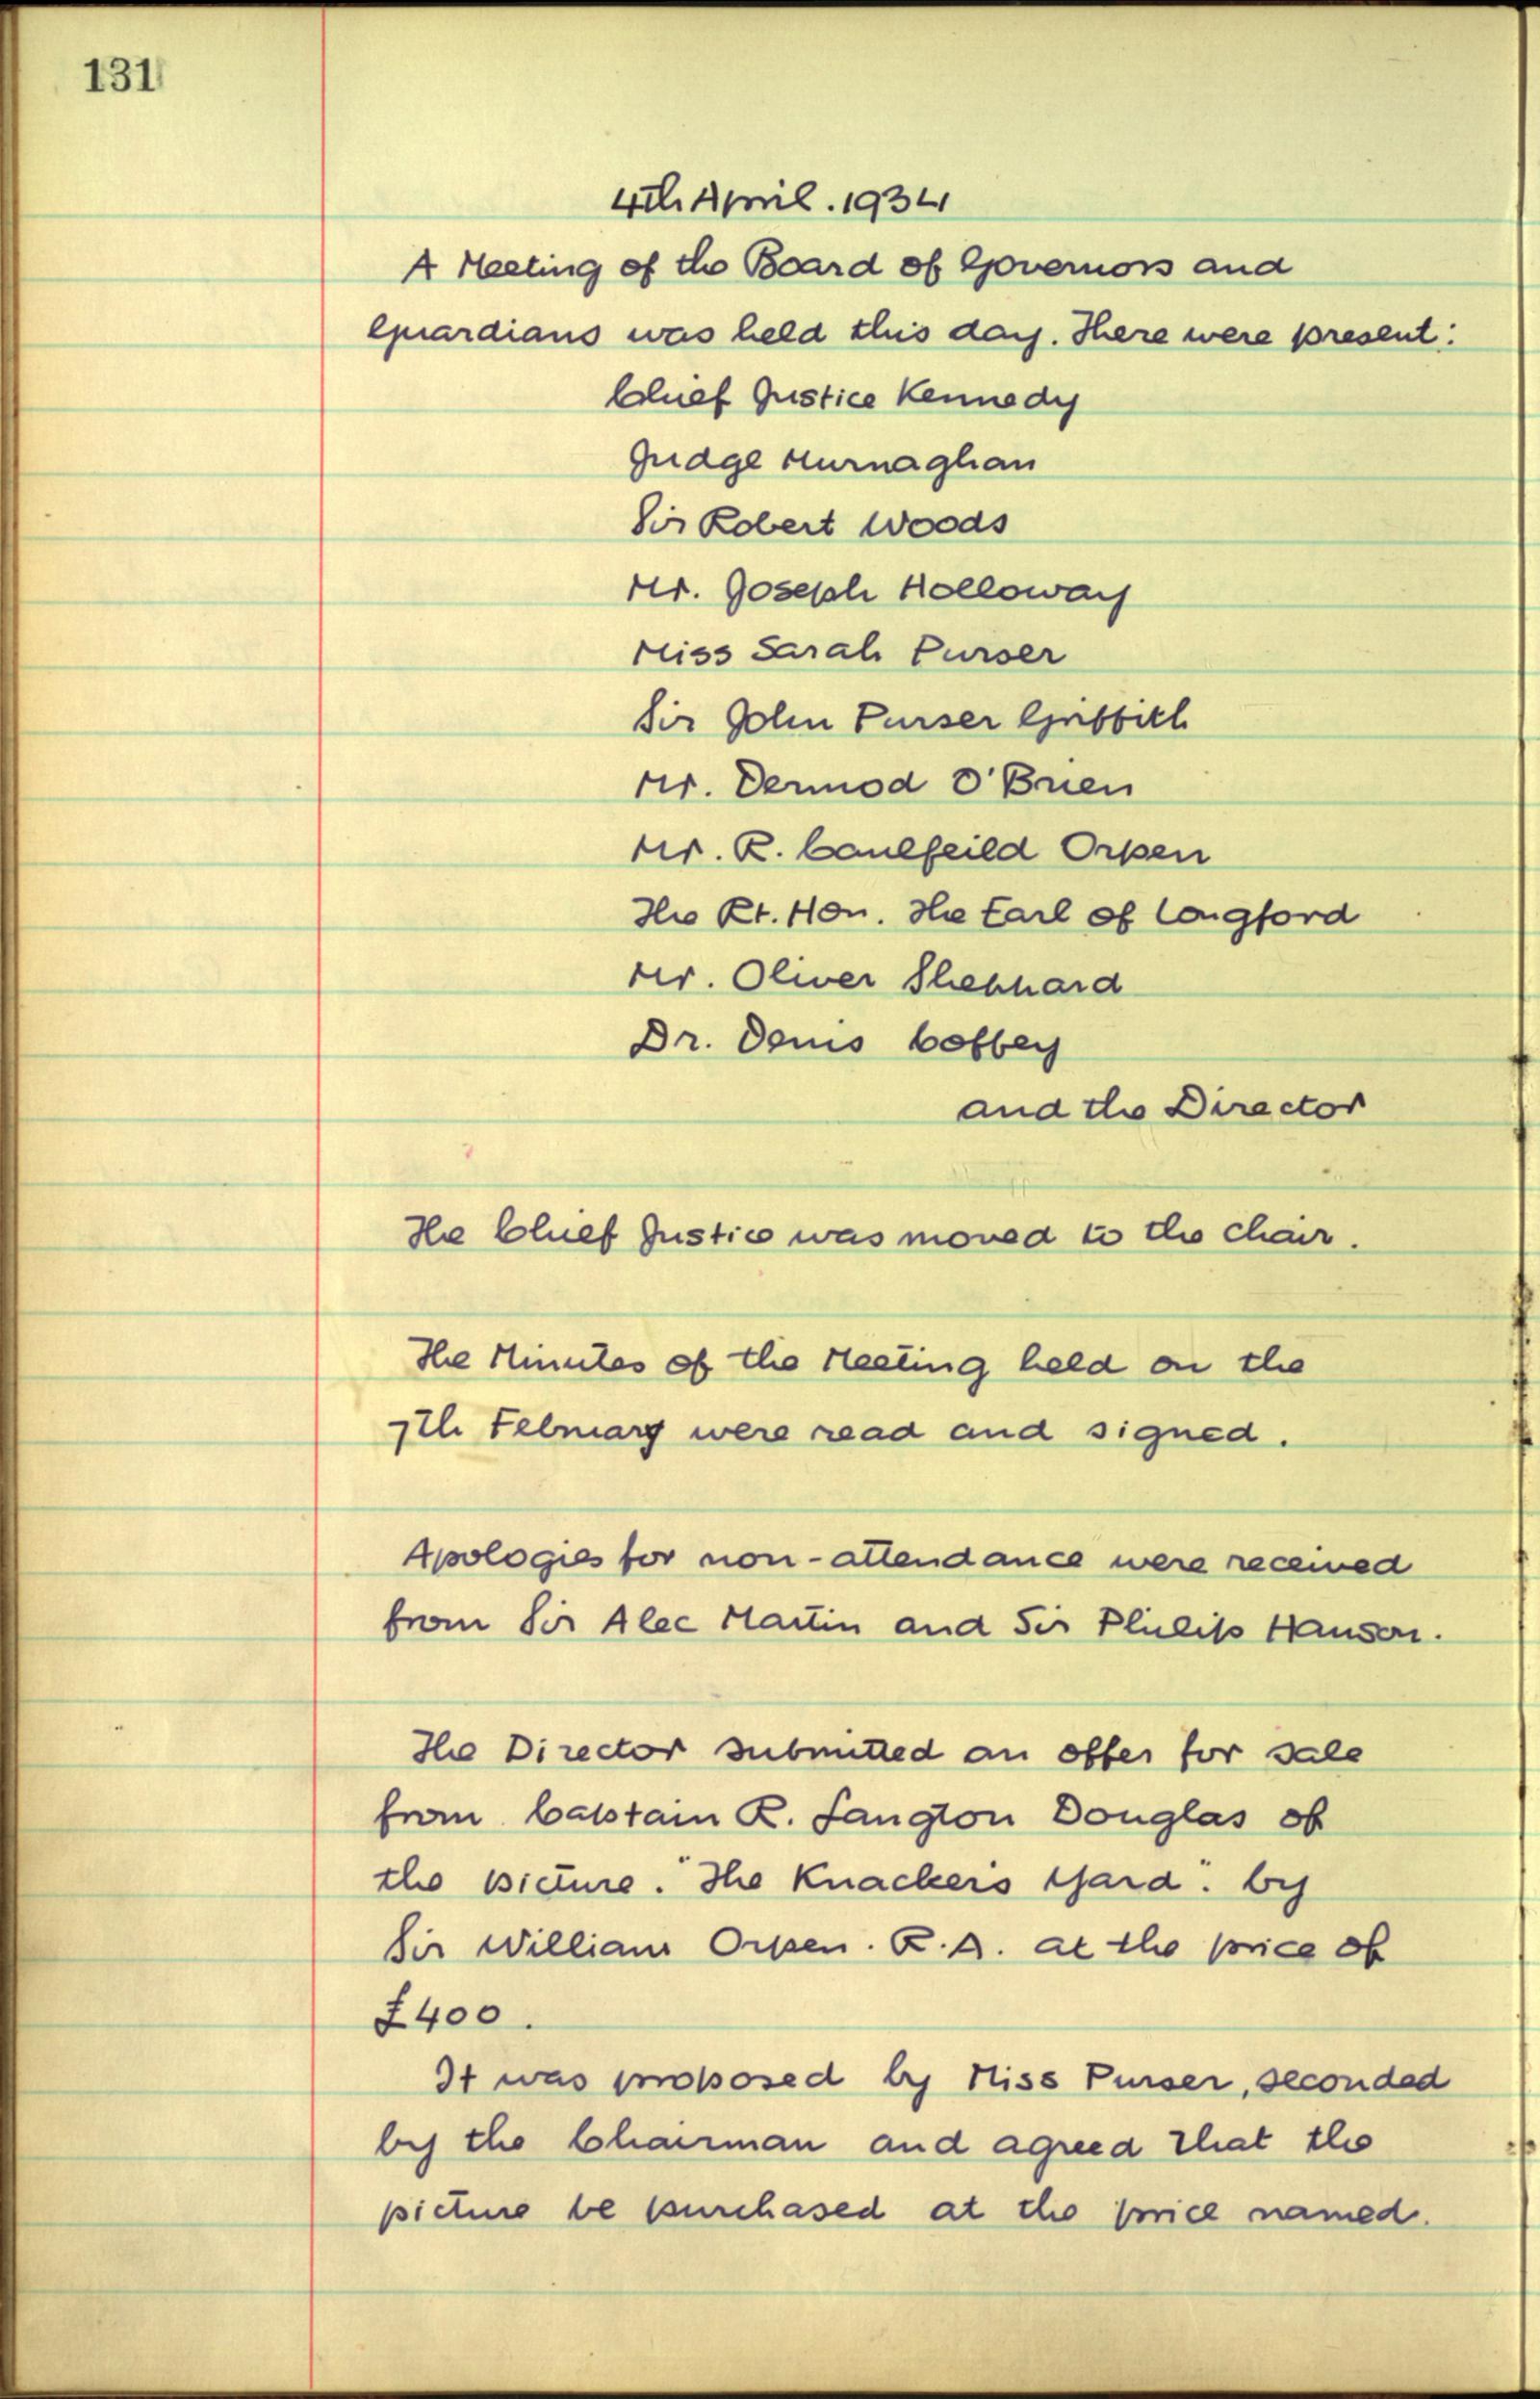 131
4th April. 1934
A Meeting of the Board of Governors and
Guardians was held this day. There were present:
Chief Justice Kennedy
Judge Murnaghan
Sir Robert Woods
Mr. Joseph Holloway
Miss Sarah Purser
Sir John Purser Griffith
Mr. Dermod O'Brien
Mr. R. Caulfeild Orpen
The Rt. Hon. The Earl of Longford
Mr. Oliver Sheppard
Dr. Denis Coffey
and the Director
The Chief Justice was moved to the chair.
The Minutes of the Meeting held on the
7th February were read and signed.
Apologies for non-attendance were received
from Sir Alec Martin and Sir Philip Hanson.
The Director submitted an offer for sale
from Captain R. Langton Douglas of
the picture. "The Knackers Yard". by
Sir William Orpen. R.A. at the price of
£400.
It was proposed by Miss Purser, seconded
by the Chairman and agreed that the
picture be purchased at the price named.